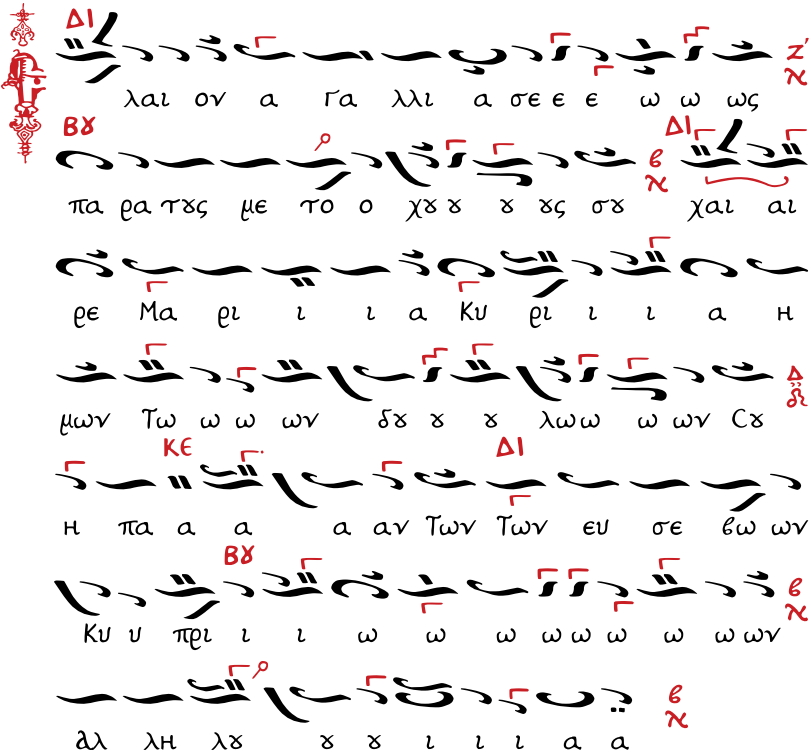 ΔΙ
Ε λαι ον α γα λλι α σε ε ε ω ω ως Ζ'
Βȣ ΔΙ
πα ρα τȣς με το ο χȣ ȣ ȣ ȣς σȣ β χαι αι
ρε Μα ρι ι ι α Κυ ρι ι ι α η
μων Τω ω ω ων δȣ ȣ ȣ λω ω ω ων Cȣ Δ
ΚΕ ΔΙ
η πα α α α αν Των Των ευ σε βω ων
Βȣ
Κυ υ πρι ι ι ω ω ω ω ω ω ω ω ων β
αλ λη λȣ ȣ ȣ ι ι ι α α β